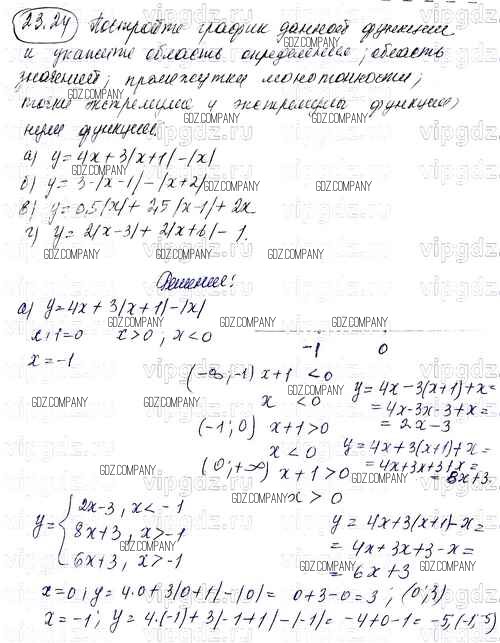 23.24 Постройте график данной функции
и укажите область определения; область
значений; промежутки монотонности;
точки экстремума и экстремумы функции;
нули функции.
а) y = 4x + 3|x+1| - |x|
б) y = 3 - |x-1| - |x+2|
в) y = 0,5|x| + 2,5|x-1| + 2x
г) y = 2|x-3| + 2|x+6| - 1.
Решение:
а) y = 4x + 3|x+1| - |x|
x+1=0 x>0, x<0
x = -1
-1 0
(-∞; -1) x+1 < 0
x < 0
y = 4x - 3(x+1) + x =
= 4x - 3x - 3 + x =
= 2x - 3
(-1; 0) x+1 > 0
x < 0
y = 4x + 3(x+1) + x =
= 4x + 3x + 3 + x =
= 8x + 3
(0; +∞) x+1 > 0
x > 0
y = 4x + 3(x+1) - x =
= 4x + 3x + 3 - x =
= 6x + 3
y = { 2x-3, x < -1
8x+3, x > -1
6x+3, x > -1
x = 0; y = 4·0 + 3|0+1| - |0| = 0+3-0 = 3; (0; 3)
x = -1; y = 4·(-1) + 3|-1+1| - |-1| = -4+0-1 = -5, (-1; -5)
GDZ.COMPANY
vipgdz.ru